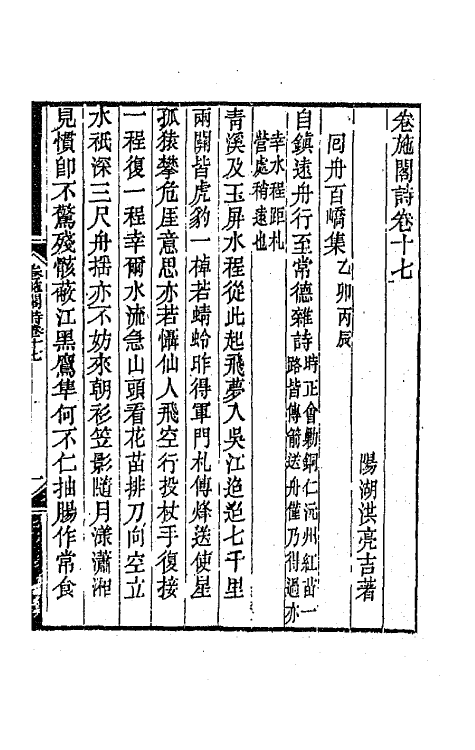 卷施閣詩卷十七
陽湖洪亮吉著
囘舟百嶠集乙卯丙辰
自鎮遠舟行至常德雜詩時正會勦銅仁沅州紅苗一
路皆傳箭送舟僅乃得過亦
幸水程距札
營處稍遠也
青溪及玉屏水程從此起飛夢入吳江迢迢七千里
兩關皆虎豹一棹若蜻蛉昨得軍門札傳烽送使星
孤猿攀危厓意思亦若懾仙人飛空行投杖手復接
一程復一程幸爾水流急山頭看花苗排刀向空立
水祇深三尺舟揺亦不妨來朝衫笠影隨月漾瀟湘
見慣卽不驚殘骸蔽江黑鷹隼何不仁抽腸作常食
卷施閣詩卷十七
一